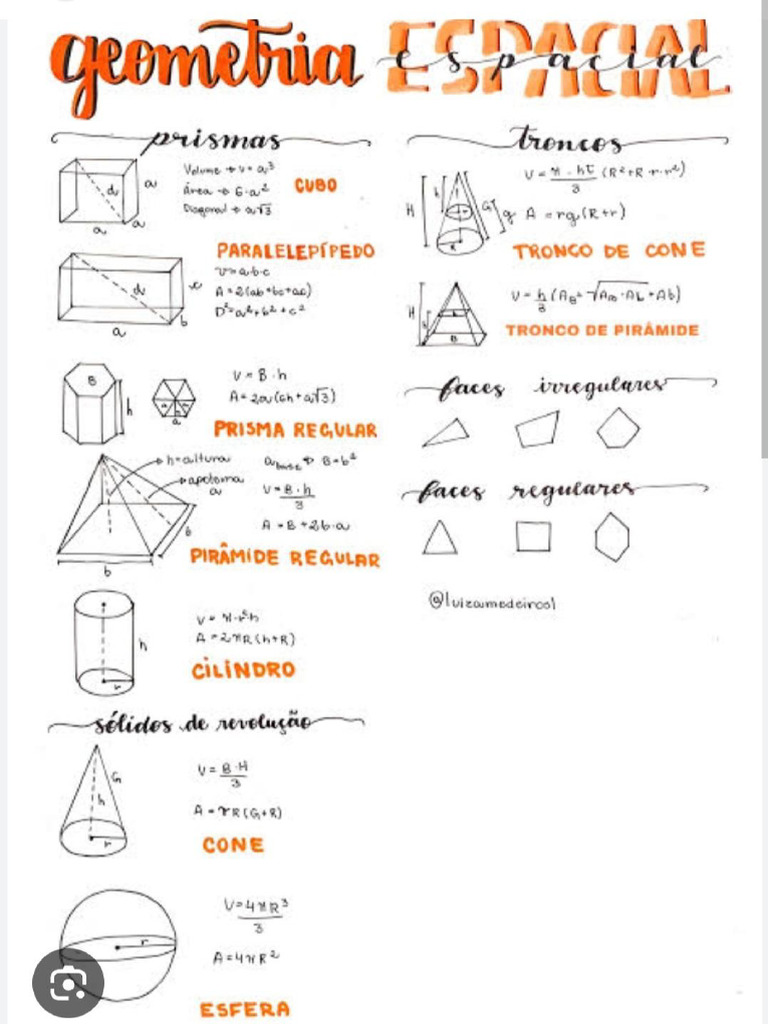 geometria ESPACIAL
espacial
prismas
a
d
a
a
Volume → V = a³
Área → 6·a²
Diagonal → a√3
CUBO
PARALELEPÍPEDO
d
c
b
a
V=a·b·c
A=2(ab+bc+ac)
D²=a²+b²+c²
B
h
a
V=B·h
PRISMA REGULAR
h=altura
apótema
a
b
b
a base → B=b²
V=B·h
3
A=B+2b·a
PIRÂMIDE REGULAR
h
r
V=π·r²·h
A=2πR(h+R)
CILINDRO
sólidos de revolução
G
h
r
V=B·H
3
A=πR(G+R)
CONE
r
V=4πR³
3
A=4πR²
ESFERA
troncos
H
h
G
g
R
3
A=πg(R+r)
TRONCO DE CONE
H
h
B
V=h(AB+√AB·Ab+Ab)
3
TRONCO DE PIRÂMIDE
faces irregulares
faces regulares